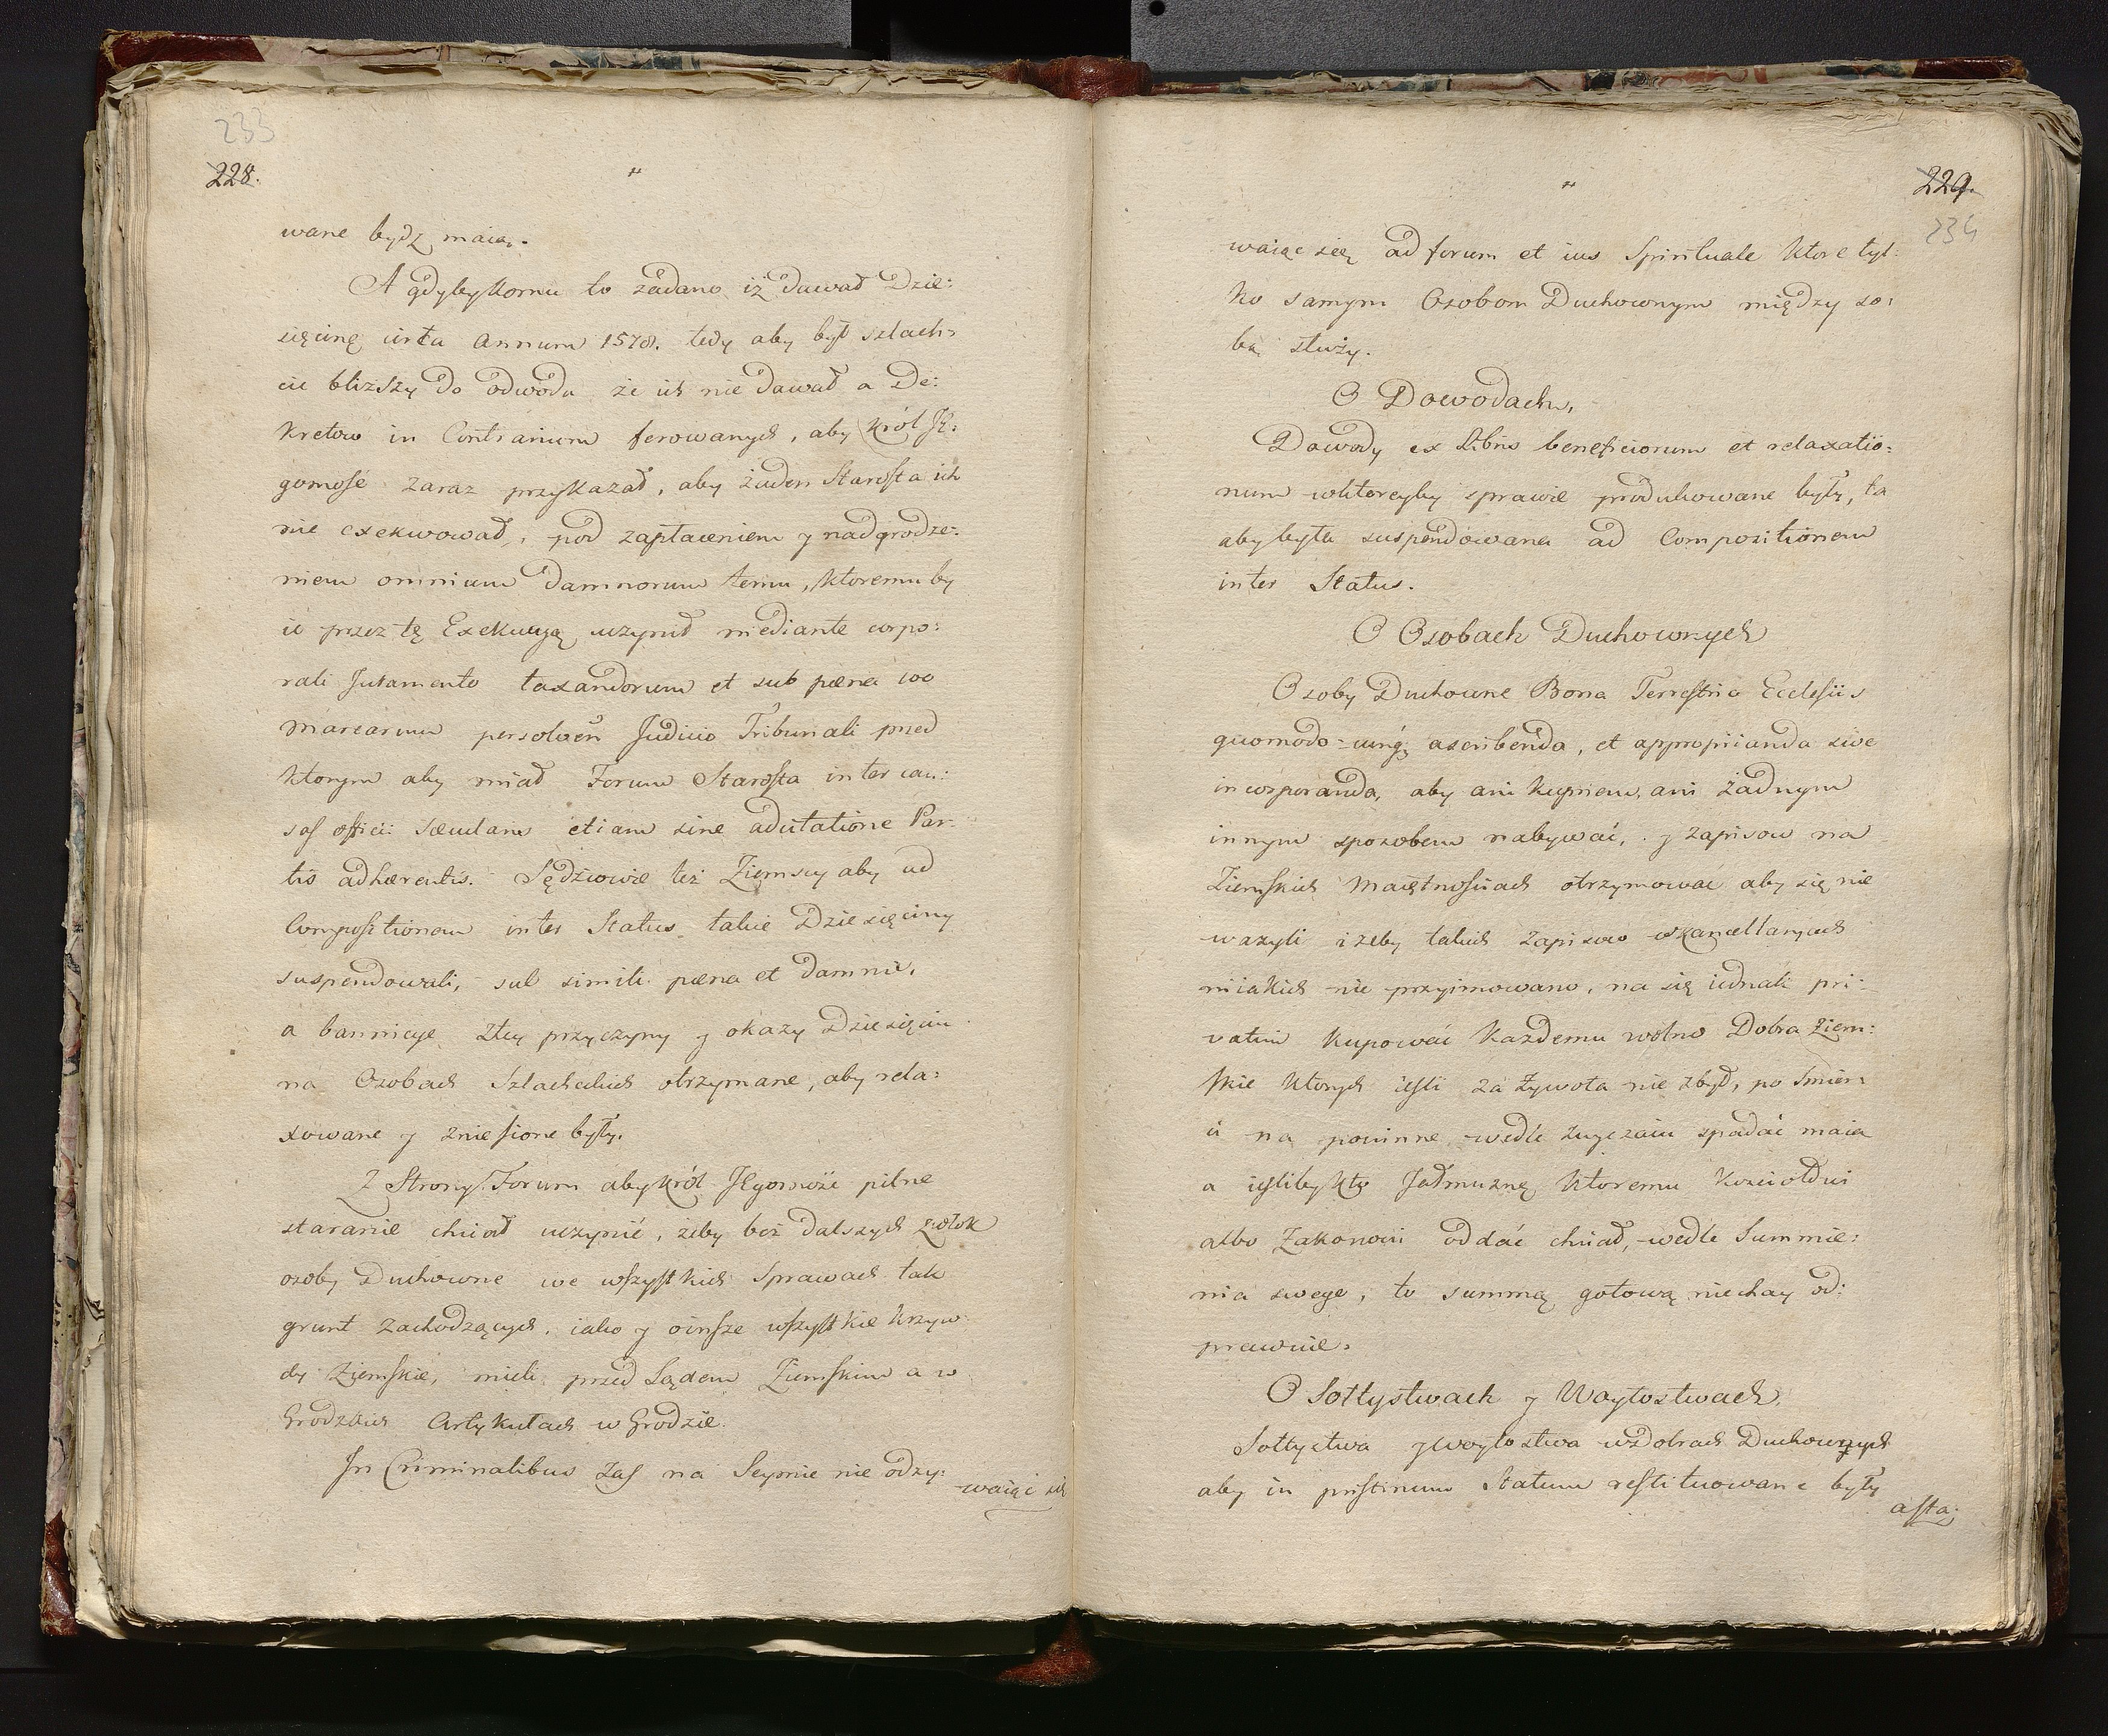 233
228.
wane bydz maią.
A gdyby komu to zadano iż dawał Dzie:
sięcinę iuxta Annum 1578. tedy aby był szlach:
cic bliższy do odwodu że ich nie dawał a De:
kretow in Contrarium ferowanych, aby Król Je:
gomość zaraz przykazał, aby żaden Starosta ich
nie exekwował, pod zapłaceniem y nadgrodze:
niem omnium damnorum temu, ktoremu by
ie przez tę Exekucyą uczynił mediante corpo:
rali Juramento taxandorum et sub pæna 100
marcarum persolven Judicio Tribunali pred
ktorym aby miał Forum Starosta inter cau:
sas officii sæculares etiam sine adcitatione Par:
tis adhærentis. Sędziowie też Ziemscy aby ad
Compositionem inter Status takie Dziesięciny
suspendowali, sub simili pæna et damnis,
a bannicye z tey przyczyny y okazy Dziesięcin
na Osobach Szlacheckich otrzymane, aby rela:
xowane y zniesione były.
Z Strony Forum aby Król Jegomość pilne
staranie chciał uczynić, żeby bez dalszych zwłok
osoby Duchowne we wszystkich Sprawach tak
grunt zachodzących, iako y oinsze wszystkie krzyw
dy Ziemskie, mieli przed Sądem Ziemskim a w
Grodzkich Artykułach w Grodzie.
In Criminalibus zas na Seymie nie odzy:
waiąc się
229.
234
waiąc się ad forum et ius Spirituale ktore tyl:
ko samym Osobom Duchownym między so:
bą służy.
O Dowodach.
Dowody ex Libris beneficiorum et relaxatio:
num wktoreyby sprawie produkowane były, ta
aby była suspendowana ad Compositionem
inter Status.
O Osobach Duchownych
Osoby Duchowne Bona Terrestria Ecclesiis
quomodo-cunq; ascribenda, et approprianda sive
incorporanda, aby ani kupnem, ani żadnym
innym sposobem nabywać, y zapisow na
Ziemskich Maiętnościach otrzymować aby się nie
ważyli i żeby takich zapisow w kancellaryach
niiakich nie przyimowano, na się iednak pri:
vatim kupować każdemu wolno Dobra Ziem:
skie ktorych iesli za żywota nie zbył, po śmier:
ci na powinne wedle zwyczaiu spadać maią
a iesliby kto Jałmużnę ktoremu Kościołowi
albo Zakonowi oddać chciał, wedle Summie:
nia swego, to summą gotową niechay od:
prawuie.
O Sołtystwach y Woytostwach.
Sołtystwa y woytostwa w dobrach Duchownych
aby in pristinum Statum restituowane były
asta: